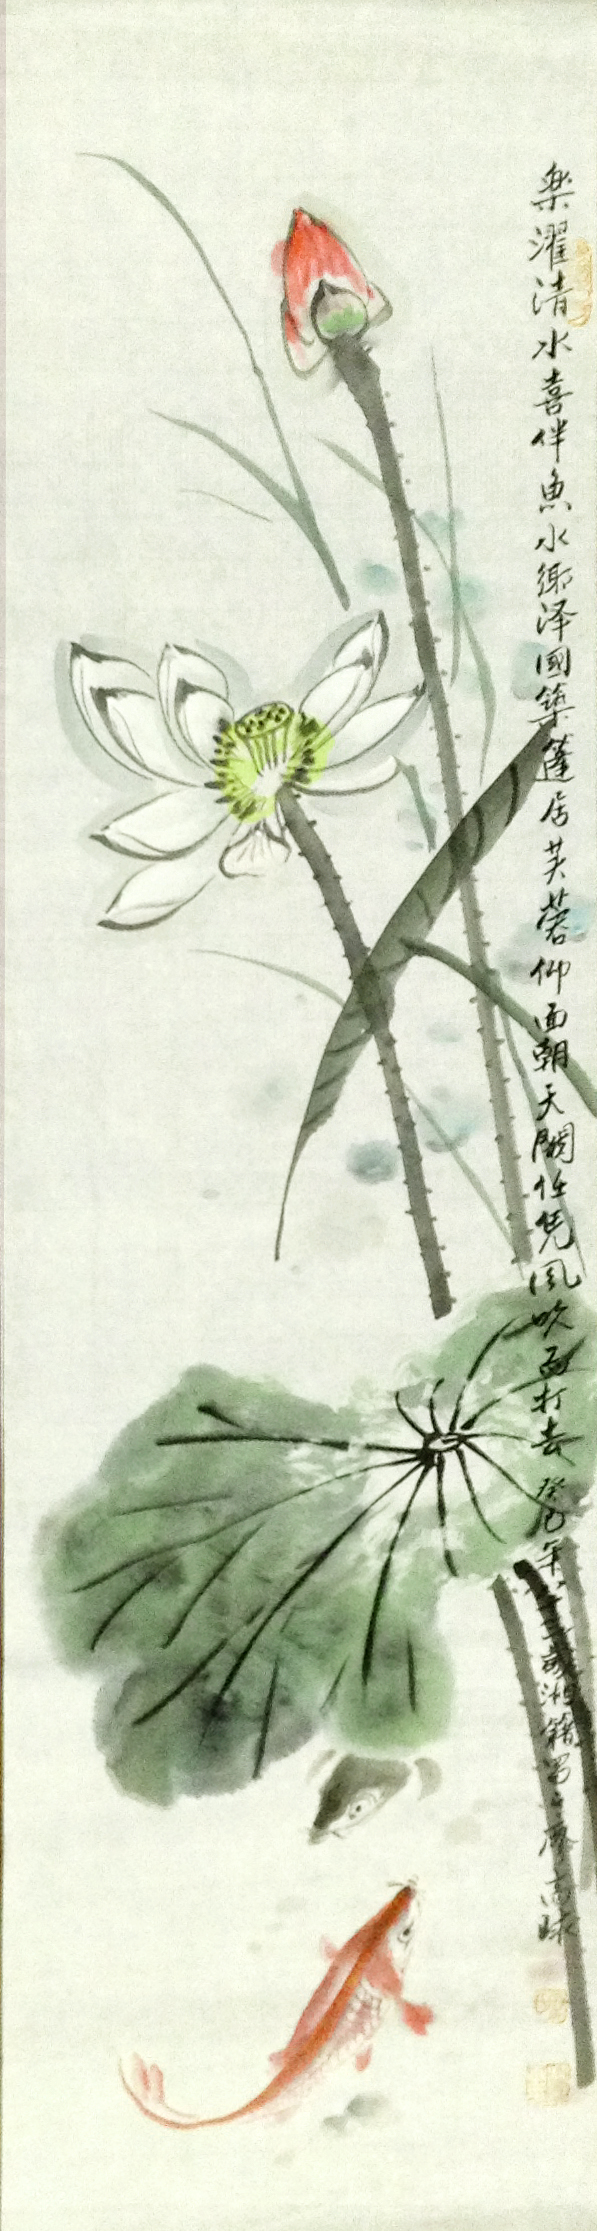 樂濯清水喜伴魚水鄉泽國築蓬居芙蓉仰面朝天闕任凭風吹雨打去 癸巳年八十三歲湘籍 廖高球